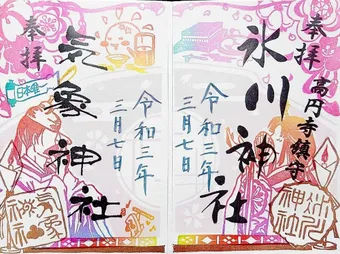 奉拝
高円寺鎮守
氷川神社
令和三年
三月七日
令和三年
三月七日
気象神社
奉拝